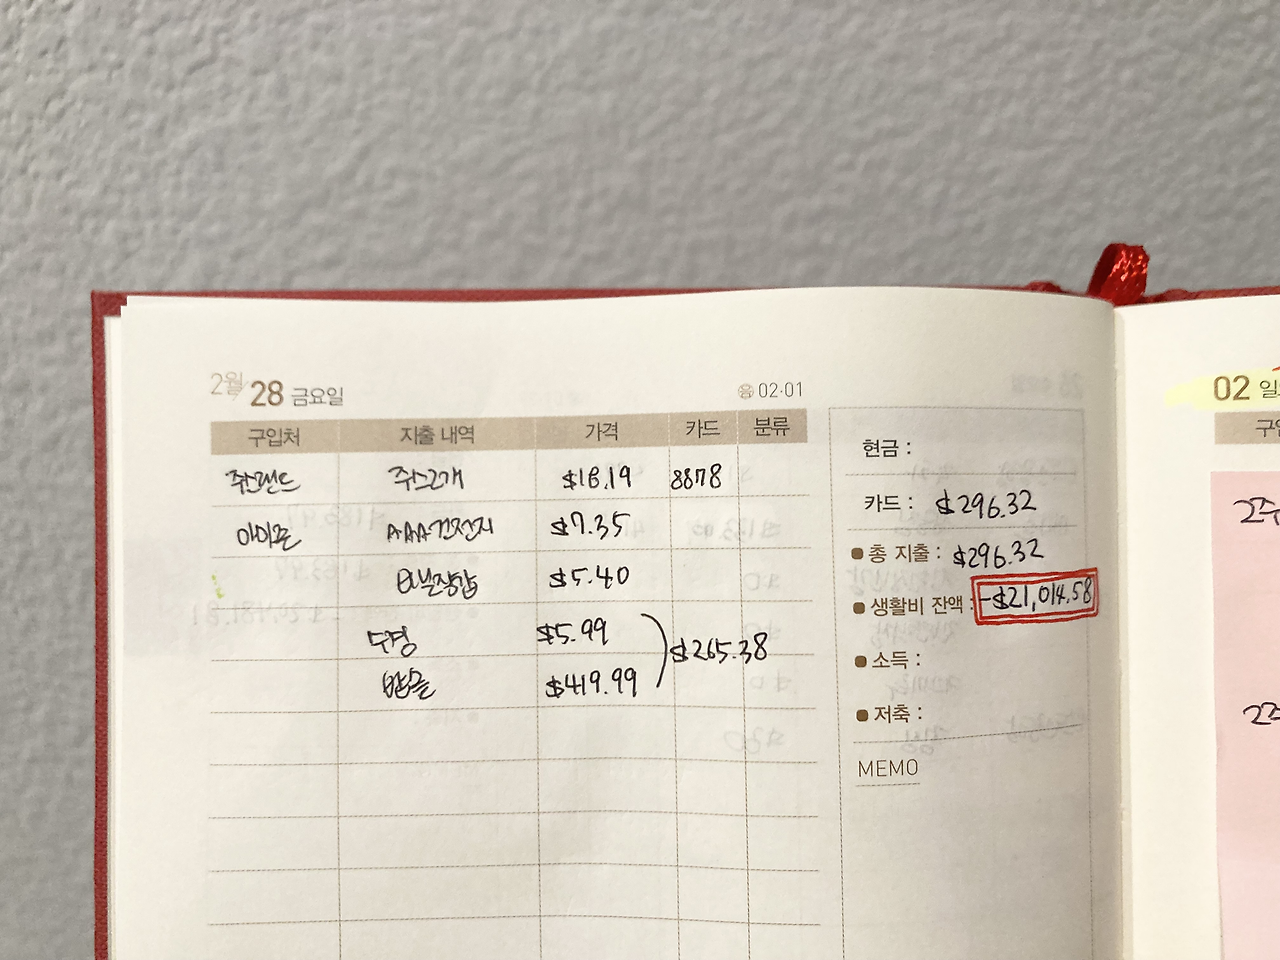 2월 28 금요일
음 02·01
구입처 지출 내역 가격 카드 분류
쥬스2개 $18.19 8878
AAA건전지 $7.35
비닐장갑 $5.40
수경 $5.99
$265.38
밥솥 $419.99
현금 :
카드 : $296.32
총 지출 : $296.32
생활비 잔액 : -$21,014.58
소득 :
저축 :
MEMO
02